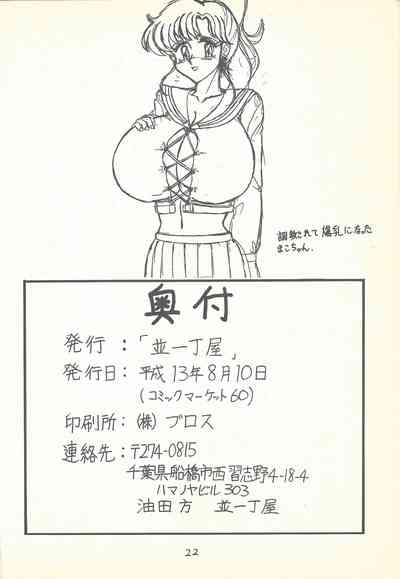 調教されて爆乳になった
まこちゃん.
奥付
発行：「並一丁屋」
発行日：平成13年8月10日
(コミックマーケット60)
印刷所：(株)プロス
連絡先：〒274-0815
千葉県船橋市西習志野4-18-4
ハマノヤビル303
油田方 並一丁屋
22